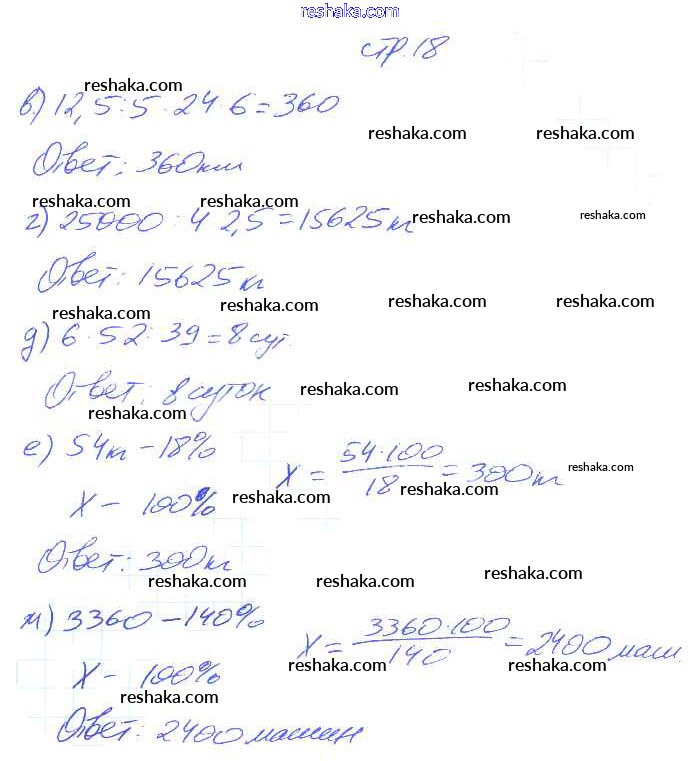 reshaka.com
стр. 18
reshaka.com
в) 12,5 : 5 · 24 · 6 = 360
reshaka.com reshaka.com
Ответ: 360км
reshaka.com reshaka.com
г) 25000 : 4 2,5 = 15625 кг
reshaka.com reshaka.com
Ответ: 15625 кг
reshaka.com reshaka.com reshaka.com reshaka.com
д) 6 · 52 : 39 = 8 сут.
Ответ: 8 суток
reshaka.com reshaka.com
reshaka.com
е) 54кг – 18% x = 54·100 / 18 = 300кг
reshaka.com
x – 100%
reshaka.com reshaka.com
Ответ: 300кг
reshaka.com reshaka.com reshaka.com
м) 3360 – 140% x = 3360·100 / 140 = 2400 маш.
x – 100%
reshaka.com reshaka.com
reshaka.com
Ответ: 2400 машин